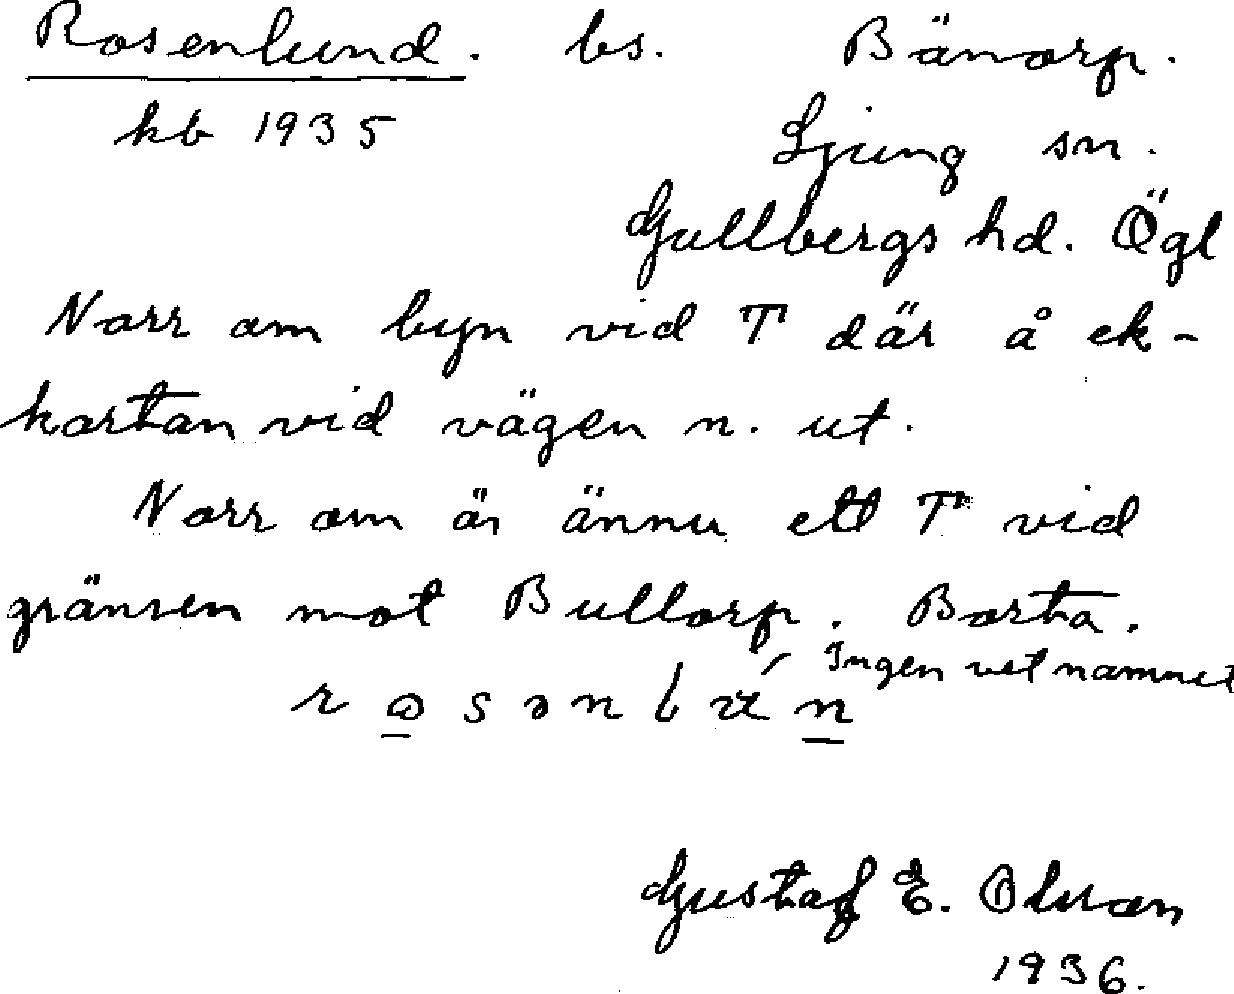 Rosenlund. bs. Bänorp.
kb 1935 Ljung sn.
Gullbergs hd. Ögl
Norr om byn vid T där å ek-
kartan vid vägen n. ut.
Norr om är ännu ett T vid
gränsen mot Bullorp. Borta.
Ingen vet namnet
Gustaf E. Olsson
1936.